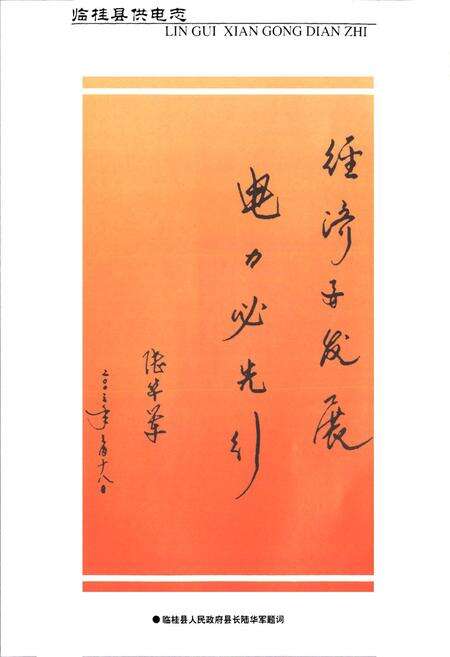 临桂县供电志
LIN GUI XIAN GONG DIAN ZHI
经济要发展
电力必先行
陆华军
二00三年三月十八日
●临桂县人民政府县长陆华军题词